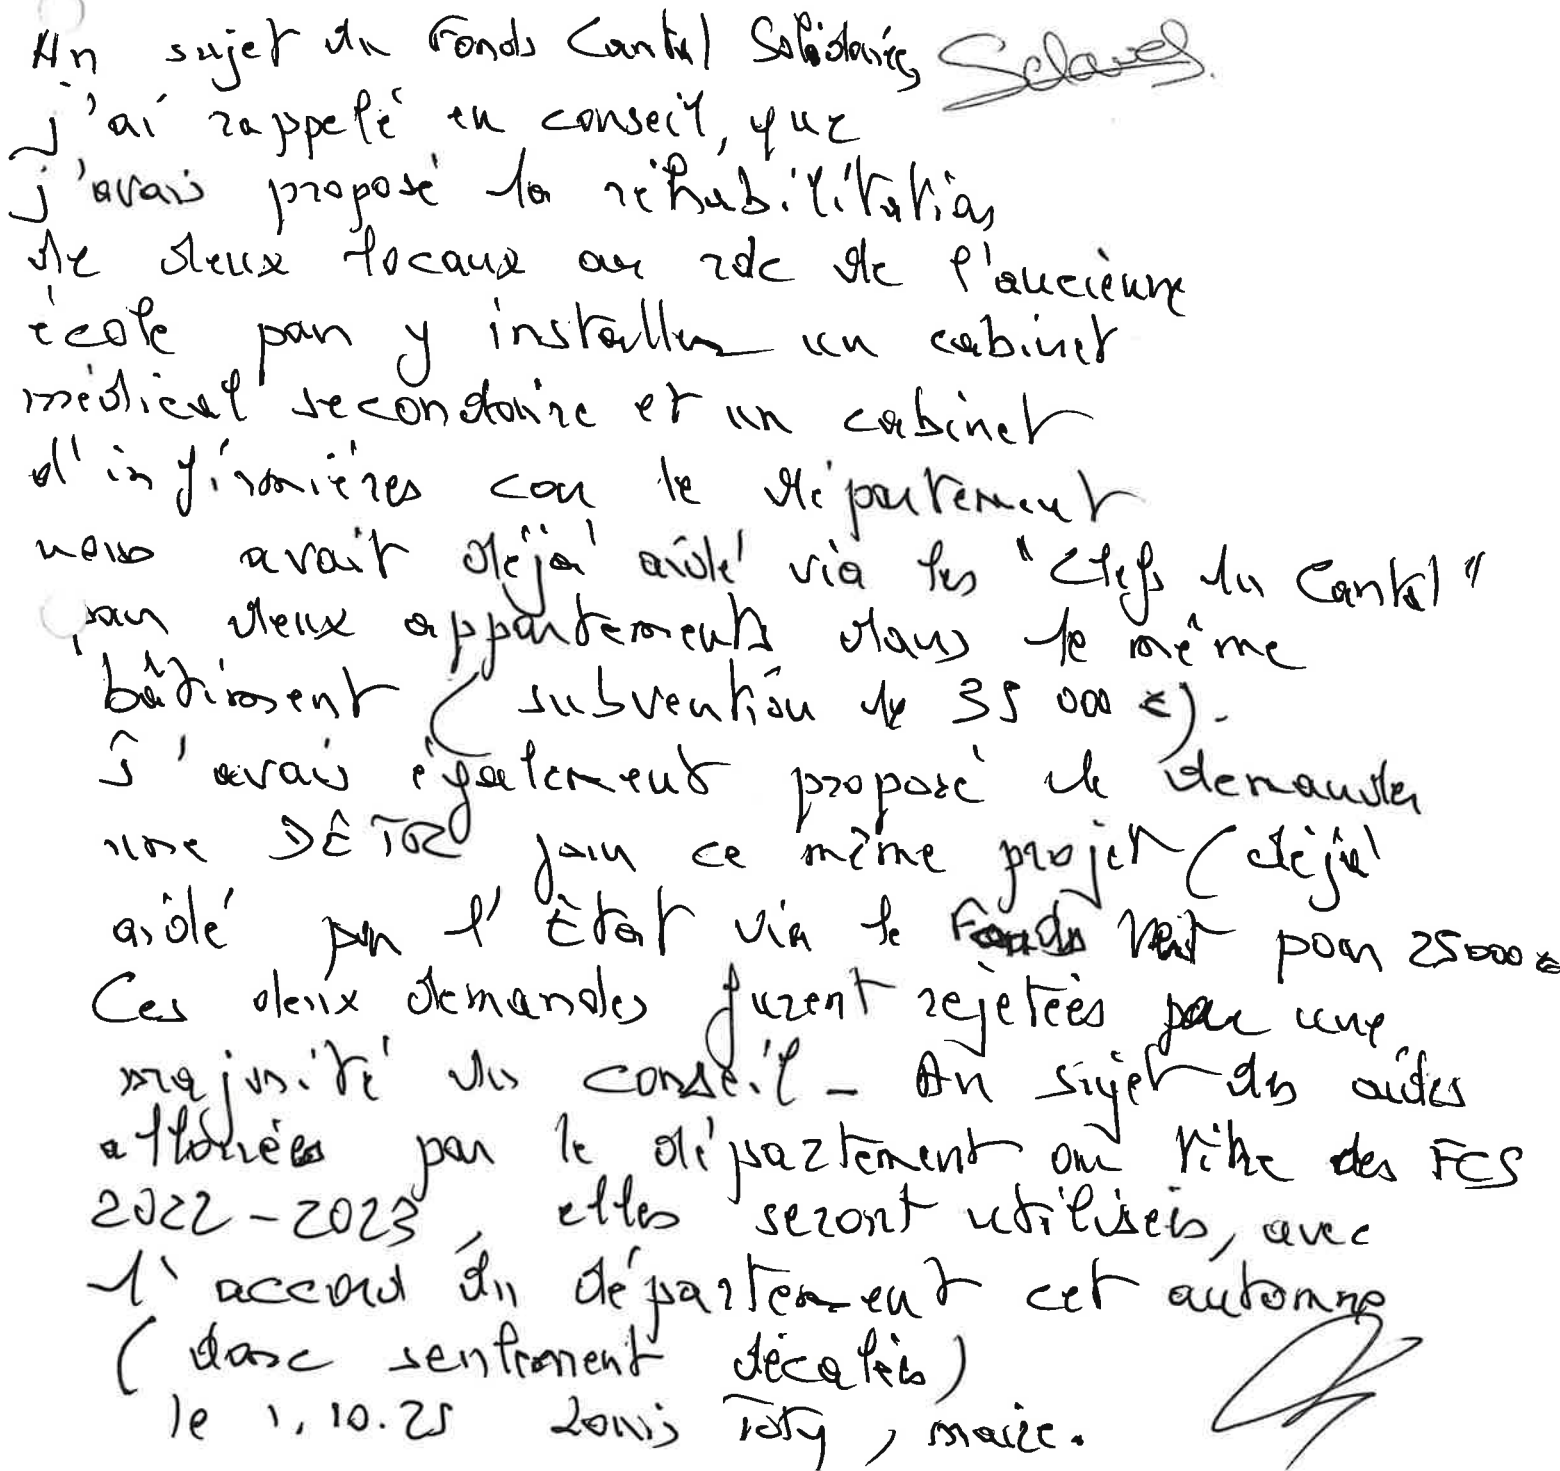 Au sujet du Fonds Cantal Solidaire,
j'ai rappelé en conseil, que
j'avais proposé la réhabilitation
de deux locaux au rdc de l'ancienne
école pour y installer un cabinet
médical secondaire et un cabinet
d'infirmières car le département
nous avait déjà aidé via les "Clefs du Cantal"
pour deux appartements dans le même
bâtiment (subvention de 35 000 €).
J'avais également proposé de demander
une DETR pour ce même projet (déjà
aidé par l'État via le Fonds Vert pour 25000 €
Ces deux demandes furent rejetées par une
majorité du conseil - Au sujet des aides
allouées par le département au titre des FCS
2022-2023, elles seront utilisées, avec
l'accord du département cet automne
(donc seulement décalées)
le 1.10.25 Louis Toty, maire.